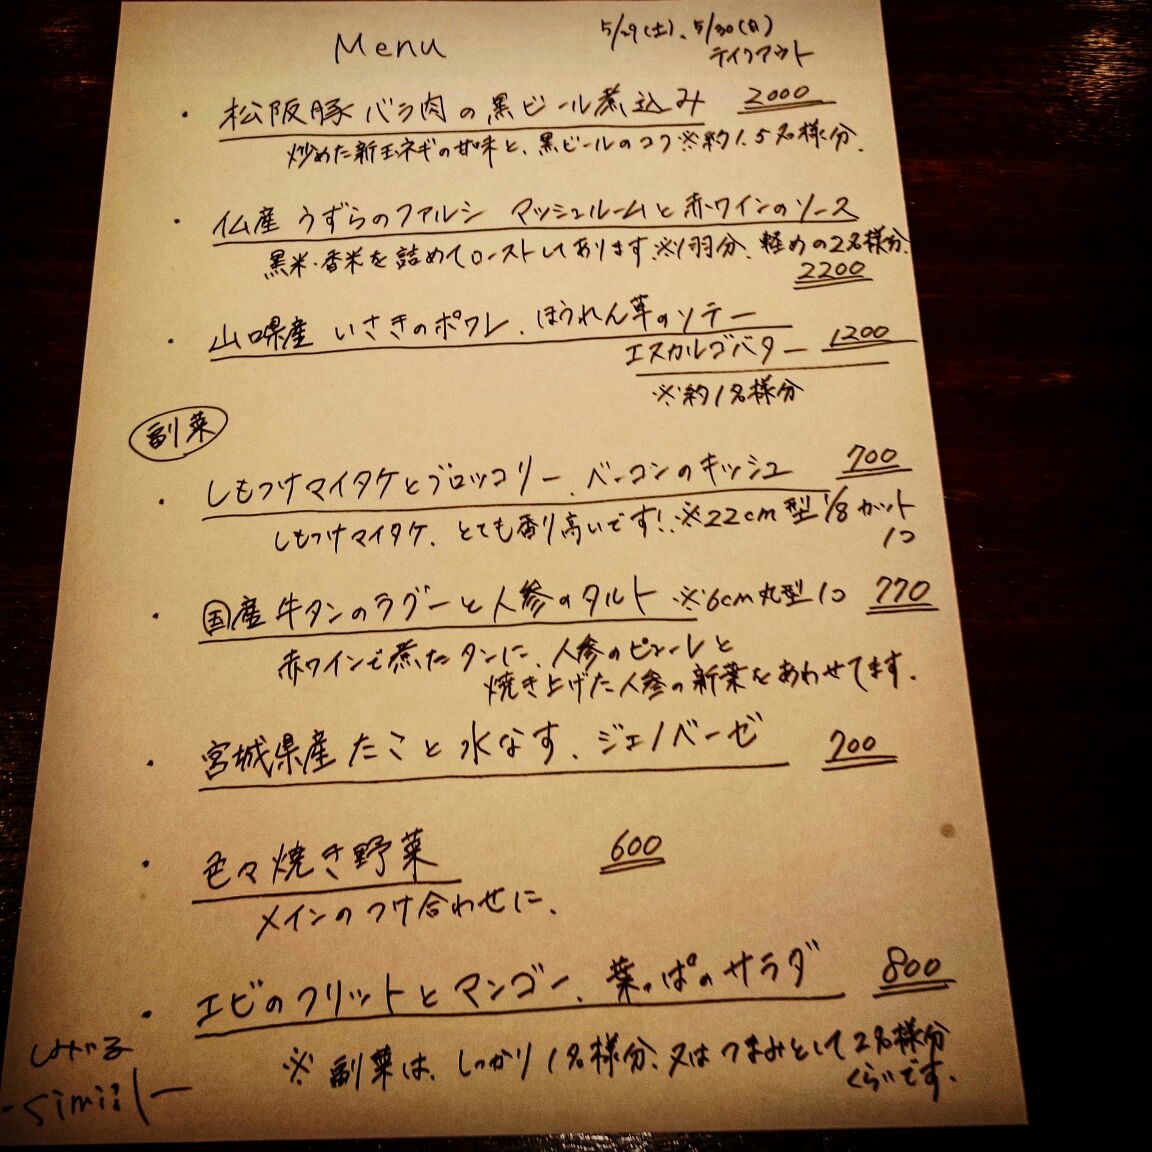 Menu
5/29(土)、5/30(日)
テイクアウト
・松阪豚バラ肉の黒ビール煮込み 2000
炒めた新玉ネギの甘味と、黒ビールのコク ※約1.5名様分.
・仏産 うずらのファルシ マッシュルームと赤ワインのソース
黒米・香米を詰めてローストしてあります.※1羽分、軽めの2名様分.
2200
・山口県産 いさきのポワレ、ほうれん草のソテー
エスカルゴバター 1200
※約1名様分
副菜
・しもつけマイタケとブロッコリー、ベーコンのキッシュ 700
しもつけマイタケ、とても香り高いです!.※22cm型 1/8カット
1つ
・国産 牛タンのラグーと人参のタルト ※6cm丸型1つ 770
赤ワインで煮たタンに、人参のピューレと
焼き上げた人参の新葉をあわせてます.
・宮城県産 たこと水なす、ジェノベーゼ 700
・色々焼き野菜 600
メインのつけ合わせに、
・エビのフリットとマンゴー、葉っぱのサラダ 800
※副菜は、しっかり1名様分、又はつまみとして2名様分
くらいです.